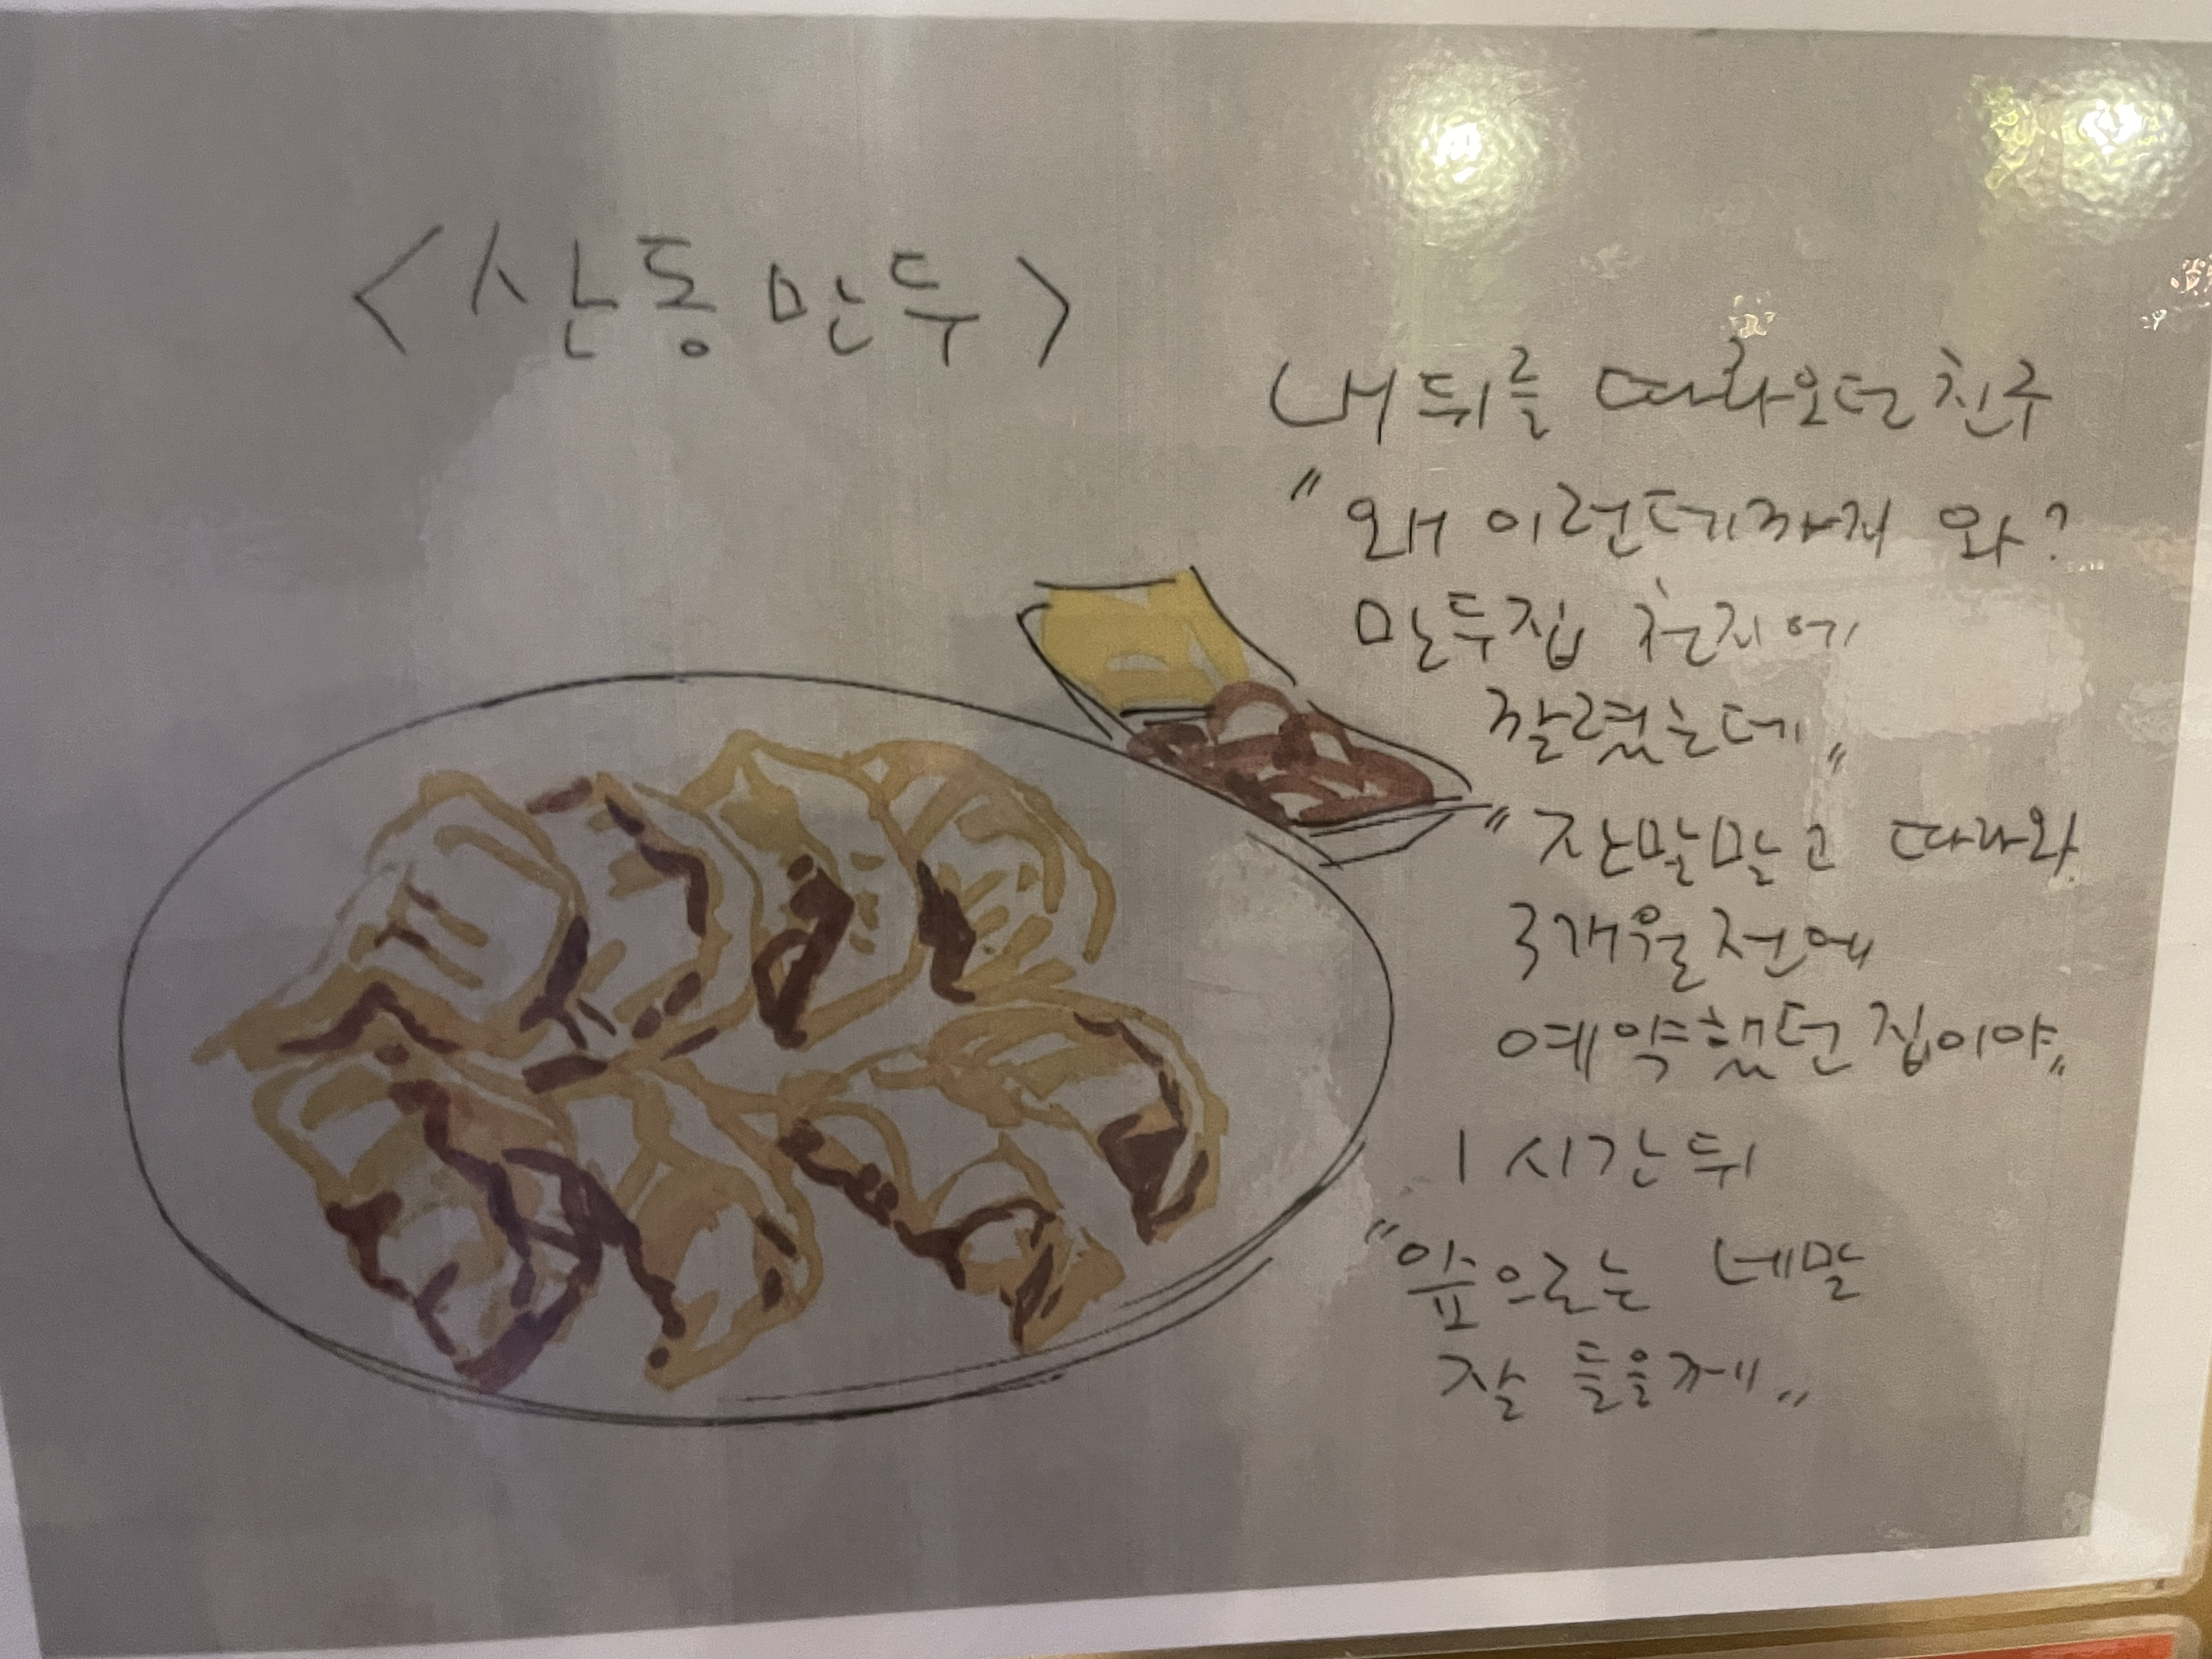 <산동만두>
내 뒤를 따라오던 친구
"왜 이런데까지 와?
만두집 천지에
깔렸는데"
"잔말말고 따라와
3개월전에
예약했던 집이야"
1시간뒤
"앞으로는 네말
잘 들을께"